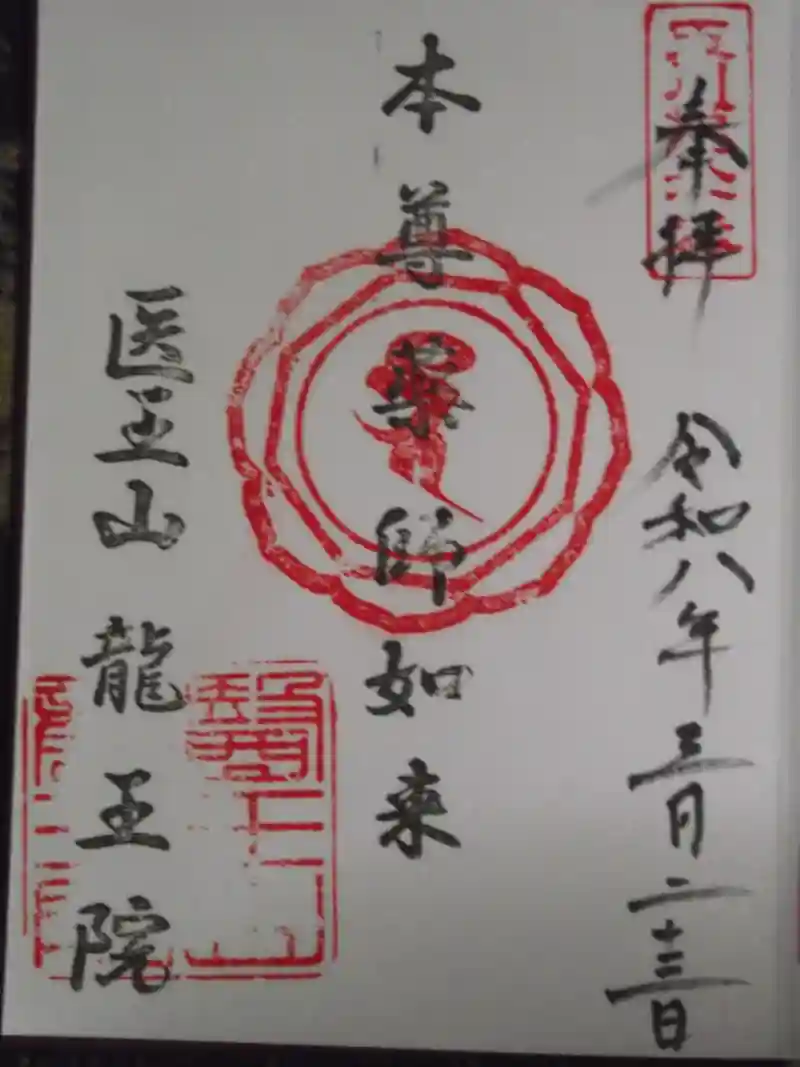 奉拝 令和八年三月二十三日
本尊薬師如来
医王山 龍王院